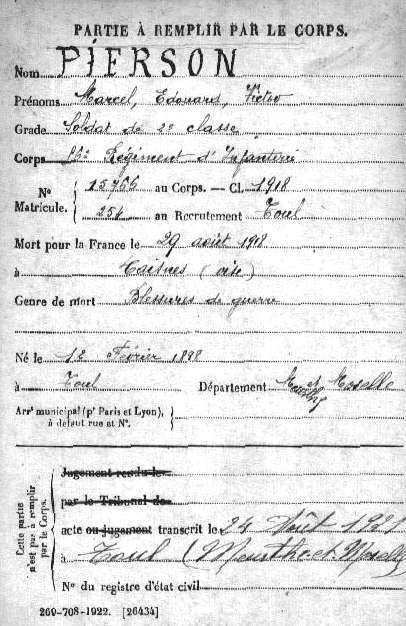 PARTIE À REMPLIR PAR LE CORPS.
Nom PIERSON
Prénoms Marcel, Edouard, Victor
Grade Soldat de 2e classe
Corps Régiment d'Infanterie
N° Matricule. 15766 au Corps. — Cl. 1918
254 au Recrutement Toul
Mort pour la France le 29 août 1918
à (oise)
Genre de mort Blessures de guerre
Né le 12 Février 1898
à Toul Département Meurthe et Moselle
Arrt municipal (pr Paris et Lyon),
à défaut rue et N°.
Cette partie
n'est pas à remplir
par le Corps.
Jugement rendu le
par le Tribunal de
acte ou jugement transcrit le 24 Août 1921
à Toul (Meurthe-et-Moselle)
N° du registre d'état civil
269-708-1922. [26434]